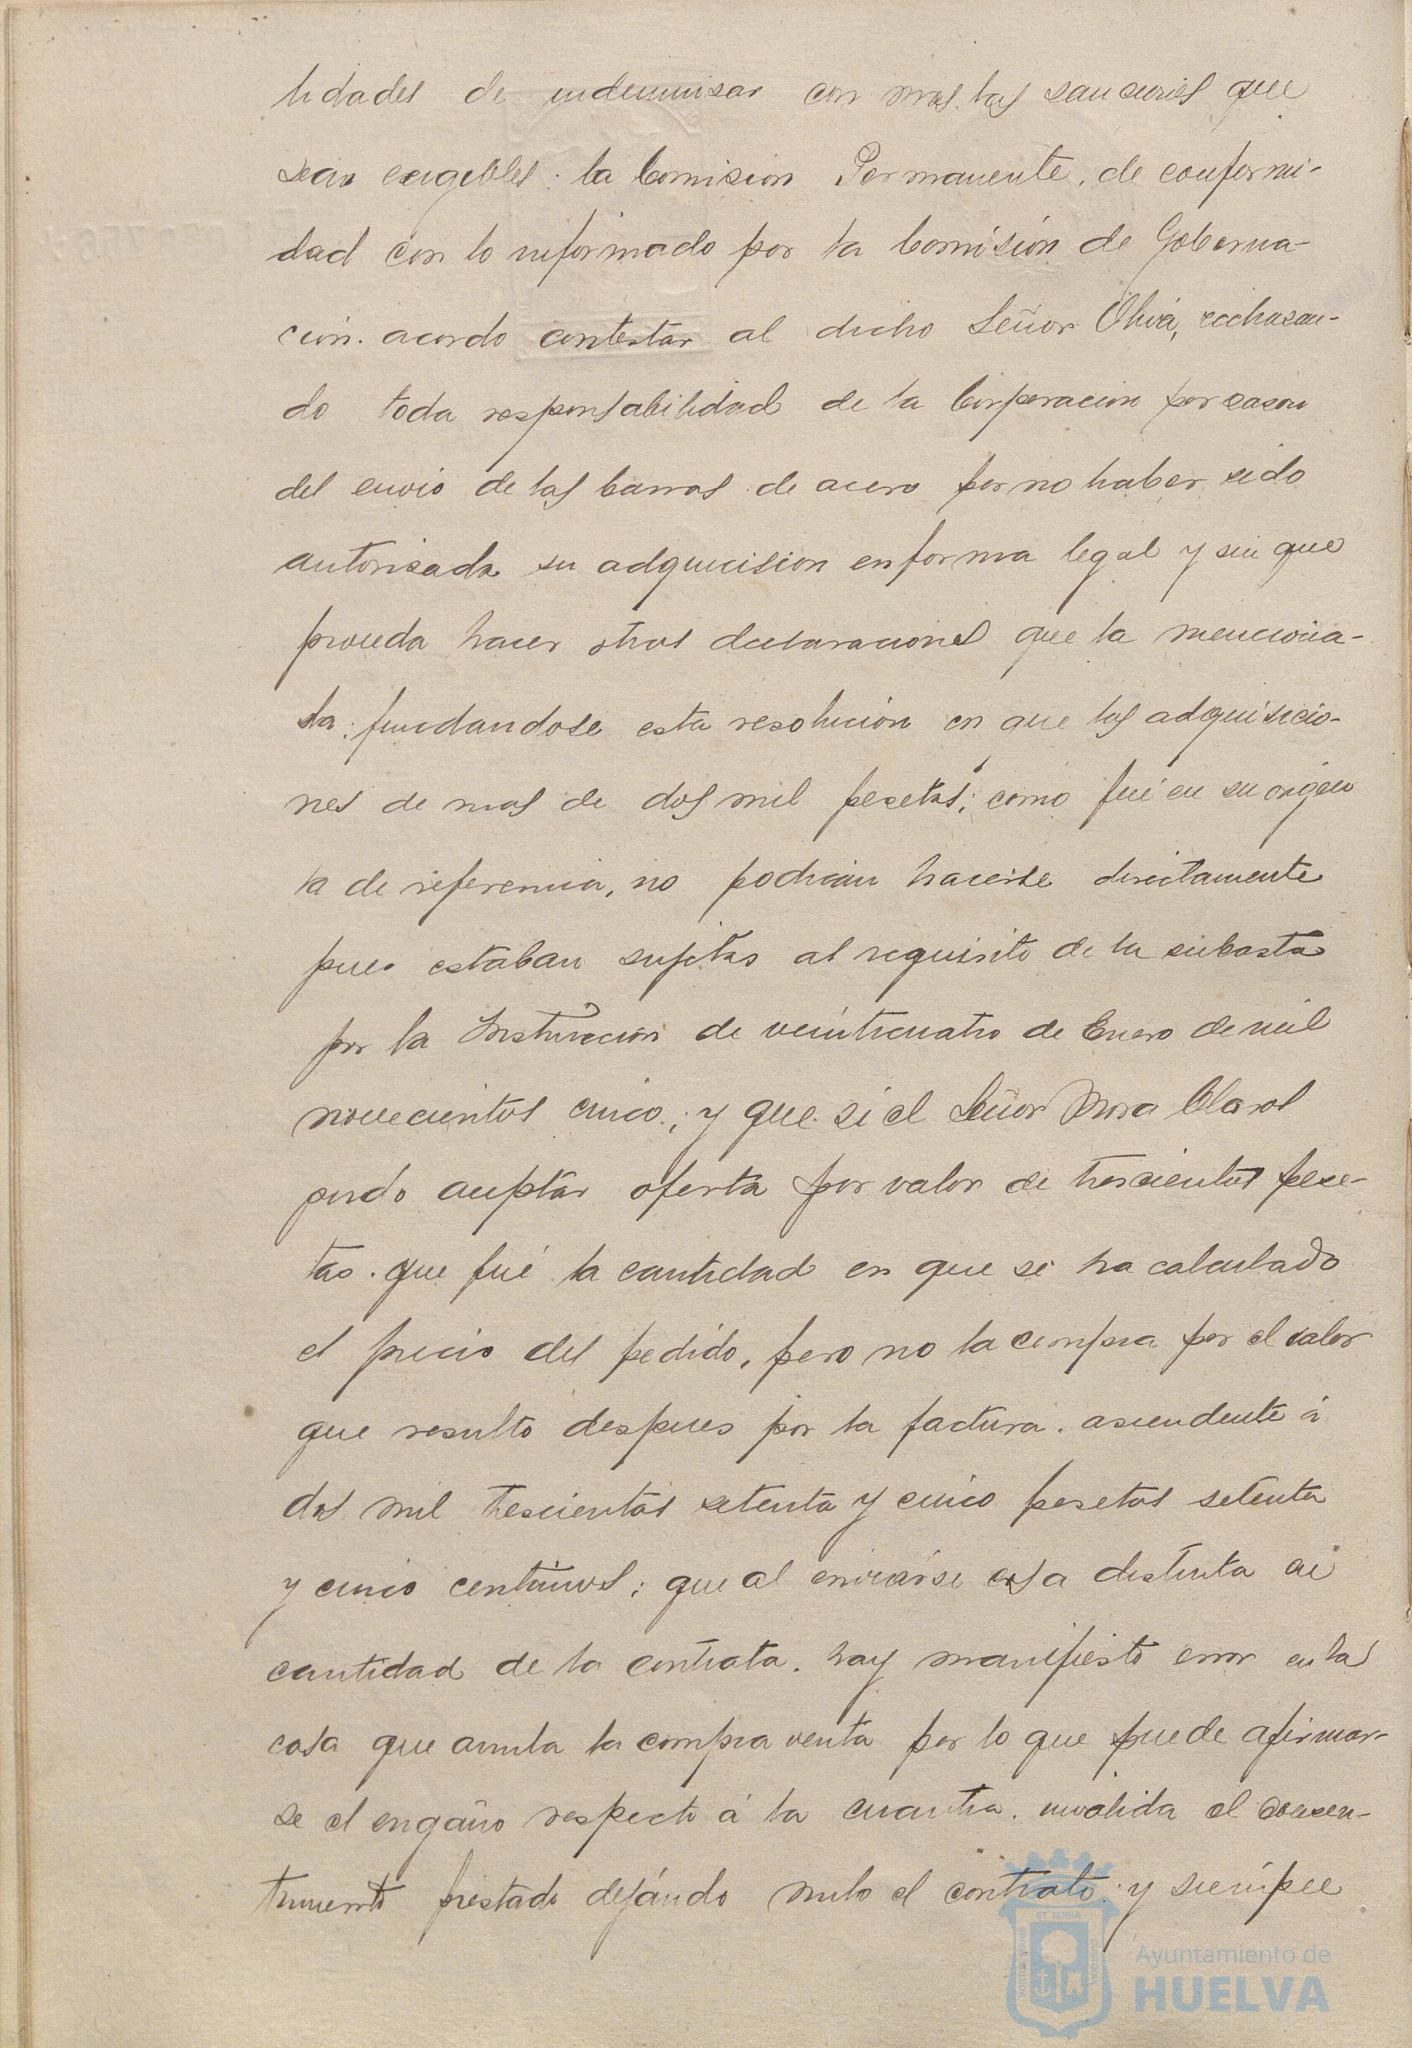 lidades de indemnisar con mas las sanciones que
sean exigibles: la Comision Permanente, de conformi-
dad con lo informado por la Comisión de Goberna-
ción. acordo contestar al dicho Señor Oliva, rechasan-
do toda responsabilidad de la Corporacion por rason
del envio de las barras de acero por no haber sido
autorisada su adquicision en forma legal y sin que
proceda hacer otras declaraciones que la menciona-
da: fundandose esta resolución en que las adquisicio-
nes de mas de dos mil pesetas, como fué en su origen
la de referencia, no podrian hacerse directamente
pues estaban sujetas al requisito de la subasta
por la Instrucción de veinticuatro de Enero de mil
novecientos cinco; y que si el Señor Mora Claros
pudo aceptar oferta por valor de trescientas pese-
tas. que fué la cantidad en que se ha calculado
el precio del pedido, pero no la compra por el valor
que resulto despues por la factura. ascendente á
dos mil trescientas setenta y cinco pesetas setenta
y cinco centimos; que al enviarse cosa distinta en
cantidad de la contrata. hay manifiesto error en la
cosa que anula la compra venta por lo que puede afirmar-
se el engaño respecto á la cuantia. invalida el consen-
timiento prestado dejándo nulo el contrato: y siempre
Ayuntamiento de
HUELVA